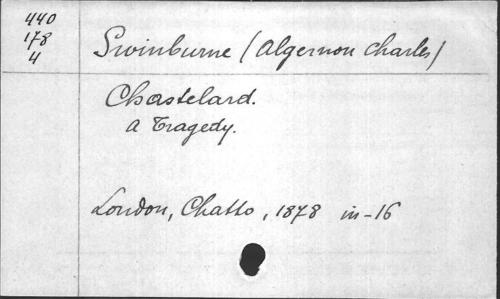 440
178
4
Swinburne (Algernon Charles)
Chastelard.
A Tragedy.
London, Chatto, 1878 in-16